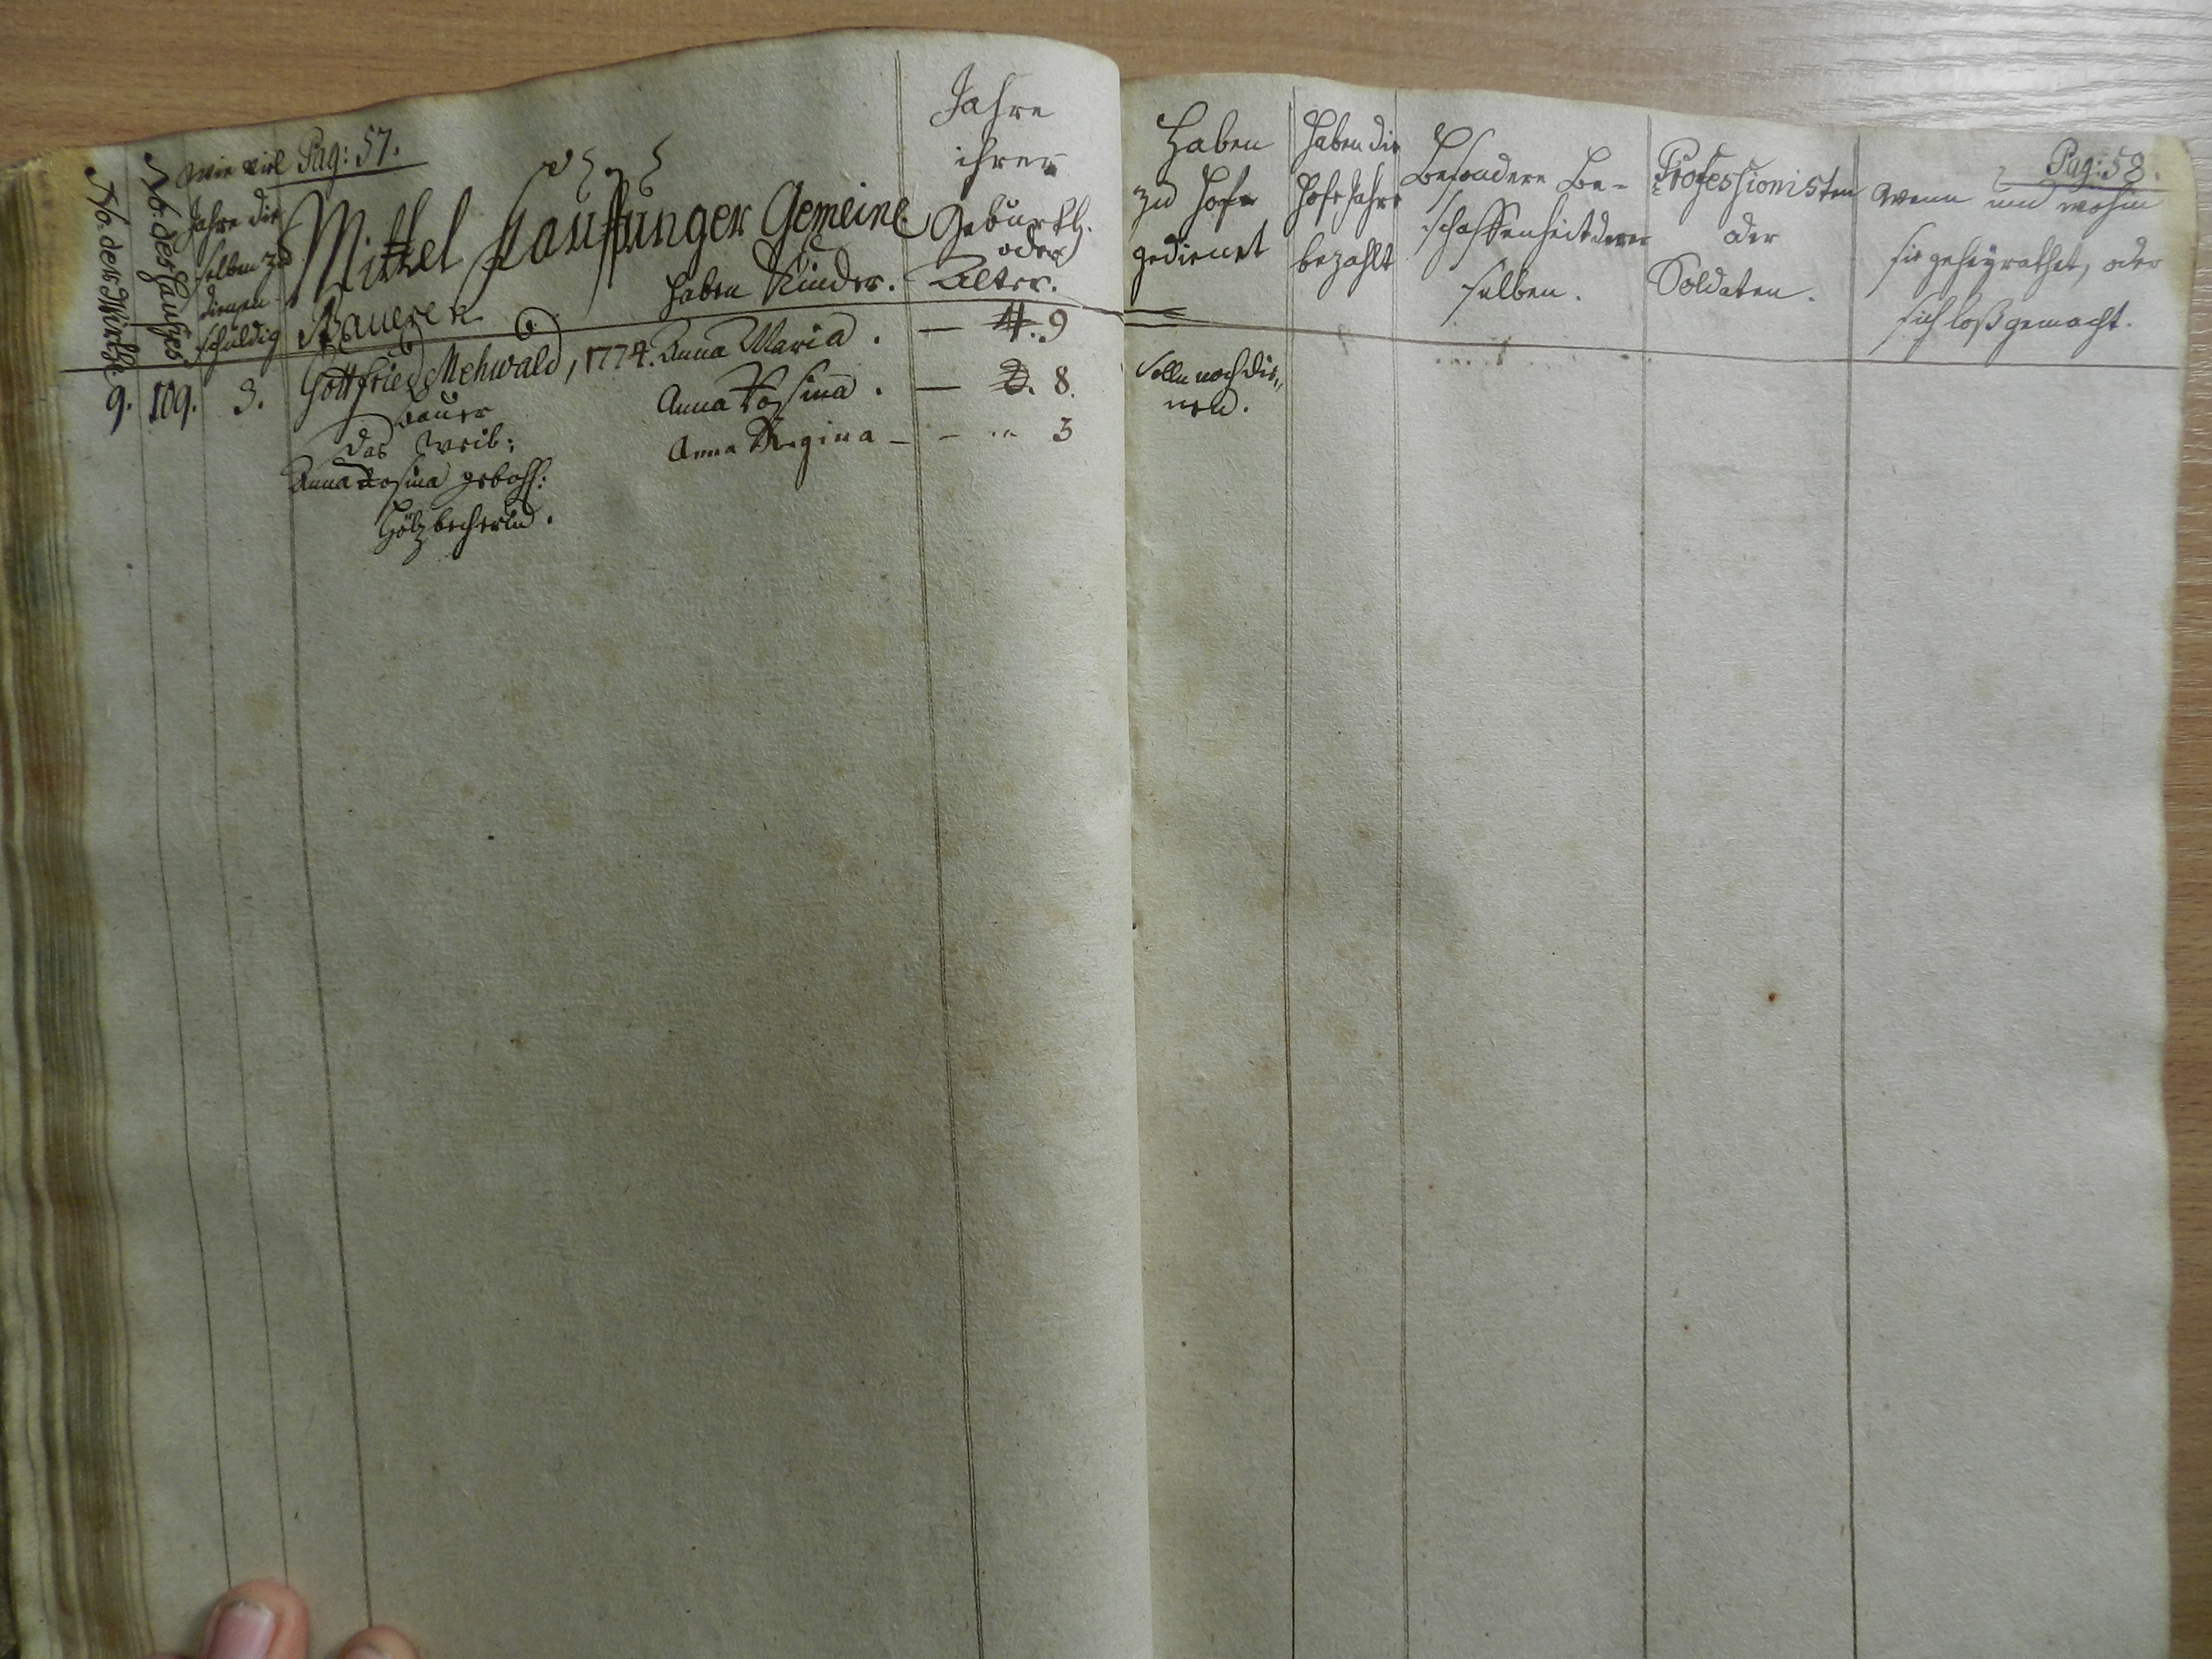 Pag: 57.
No. der Wirthe
No. des Haußes.
Wie viel
Jahre die
selben zu
dienen
schuldig
Mittel Kauffunger Gemeine
Bauern
haben Kinder.
Jahre
ihrer
Geburth.
oder
Alter.
9. 109. 3. Gottfried Mehwald, 1774. Anna Maria. — 4. 9
Bauer
Anna Rosina. — 8.
das Weib:
Anna Regina — 3
Anna Rosina gebohr:
Hölzbecherin.
Pag: 58.
Haben
zu Hofe
gedienet
Haben die
Hofe Jahre
bezahlt
Besondere Be-
schaffenheit derer
selben.
Professionisten
oder
Soldaten.
Wenn und wohin
sie geheyrathet, oder
sich loß gemacht.
Solln noch die„
nen.